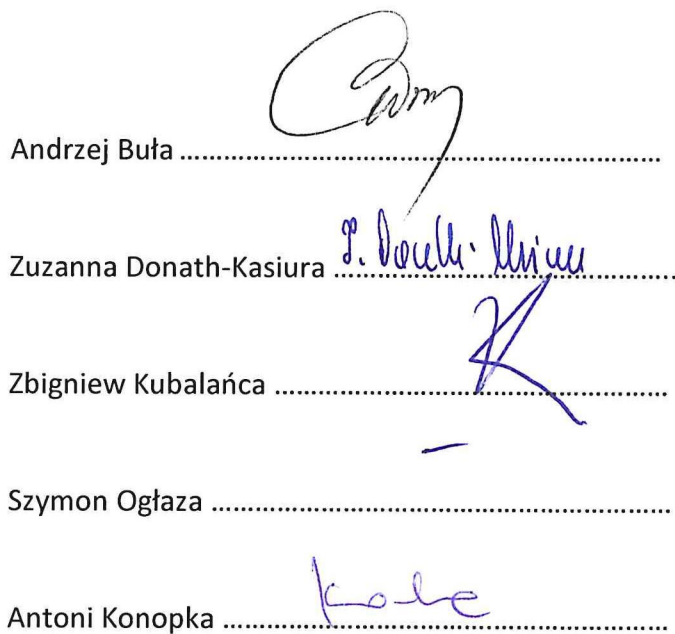 Andrzej Buła ........................................................................
Zuzanna Donath-Kasiura ....................................................
Zbigniew Kubalańca ............................................................
Szymon Ogłaza .....................................................................
Antoni Konopka ...................................................................